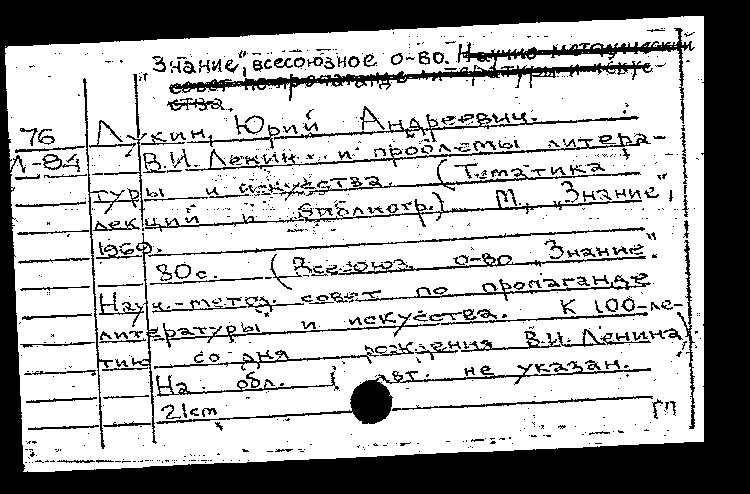 "Знание", всесоюзное о-во. Научно-методический
совет по пропаганде литературы и искус-
ства.
76 Лукин, Юрий Андреевич.
Л-84 В.И. Ленин и проблемы литера-
туры и искусства. (Тематика
лекций и библиогр.) М., "Знание",
1969.
80с. (Всесоюз. о-во "Знание".
Науч.-метод. совет по пропаганде
литературы и искусства. К 100-ле-
тию со дня рождения В.И. Ленина)
На обл. авт. не указан.
21cm ГП